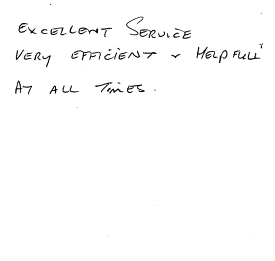 EXCELLENT SERVICE
VERY EFFICIENT & HELPFULL
AT ALL TIMES.